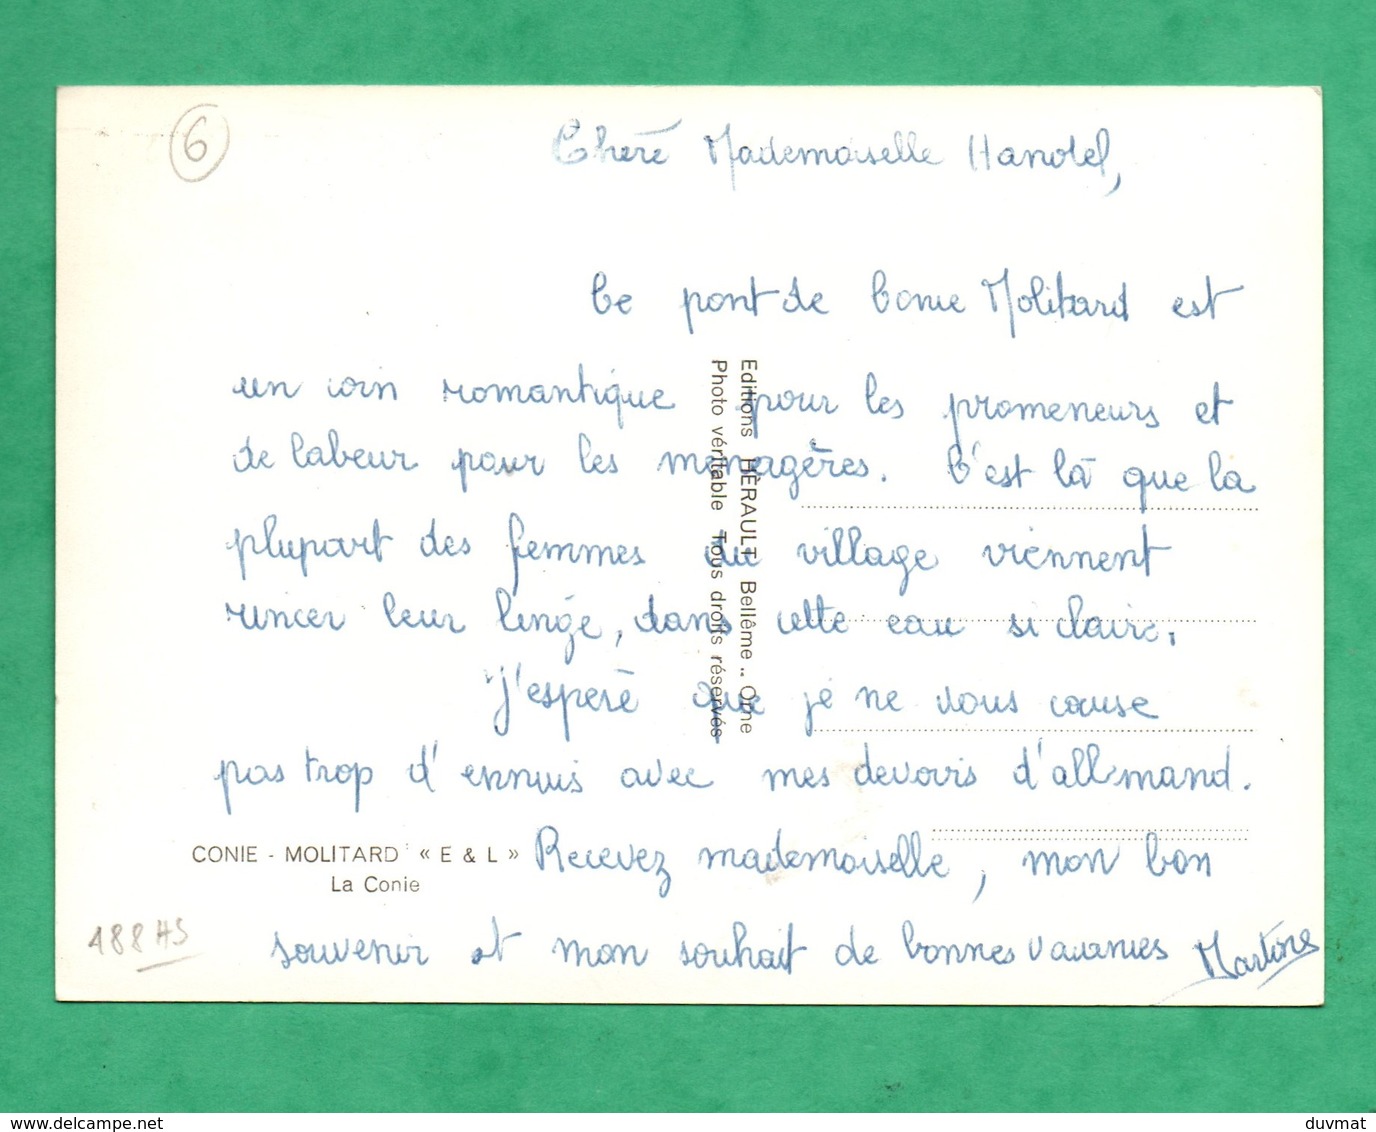 6
Chère Mademoiselle Hanotel,
Ce pont de Conie Molitard est
un coin romantique pour les promeneurs et
de labeur pour les menagères. C'est là que la
plupart des femmes du village viennent
rincer leur linge, dans cette eau si claire.
J'espère que je ne vous cause
pas trop d'ennuis avec mes devoirs d'allemand.
Recevez mademoiselle, mon bon
souvenir et mon souhait de bonnes vacances Martine
Editions HÉRAULT Bellême .. Orne
Photo véritable Tous droits réservés
CONIE - MOLITARD « E & L »
La Conie
188 HS
duvmat